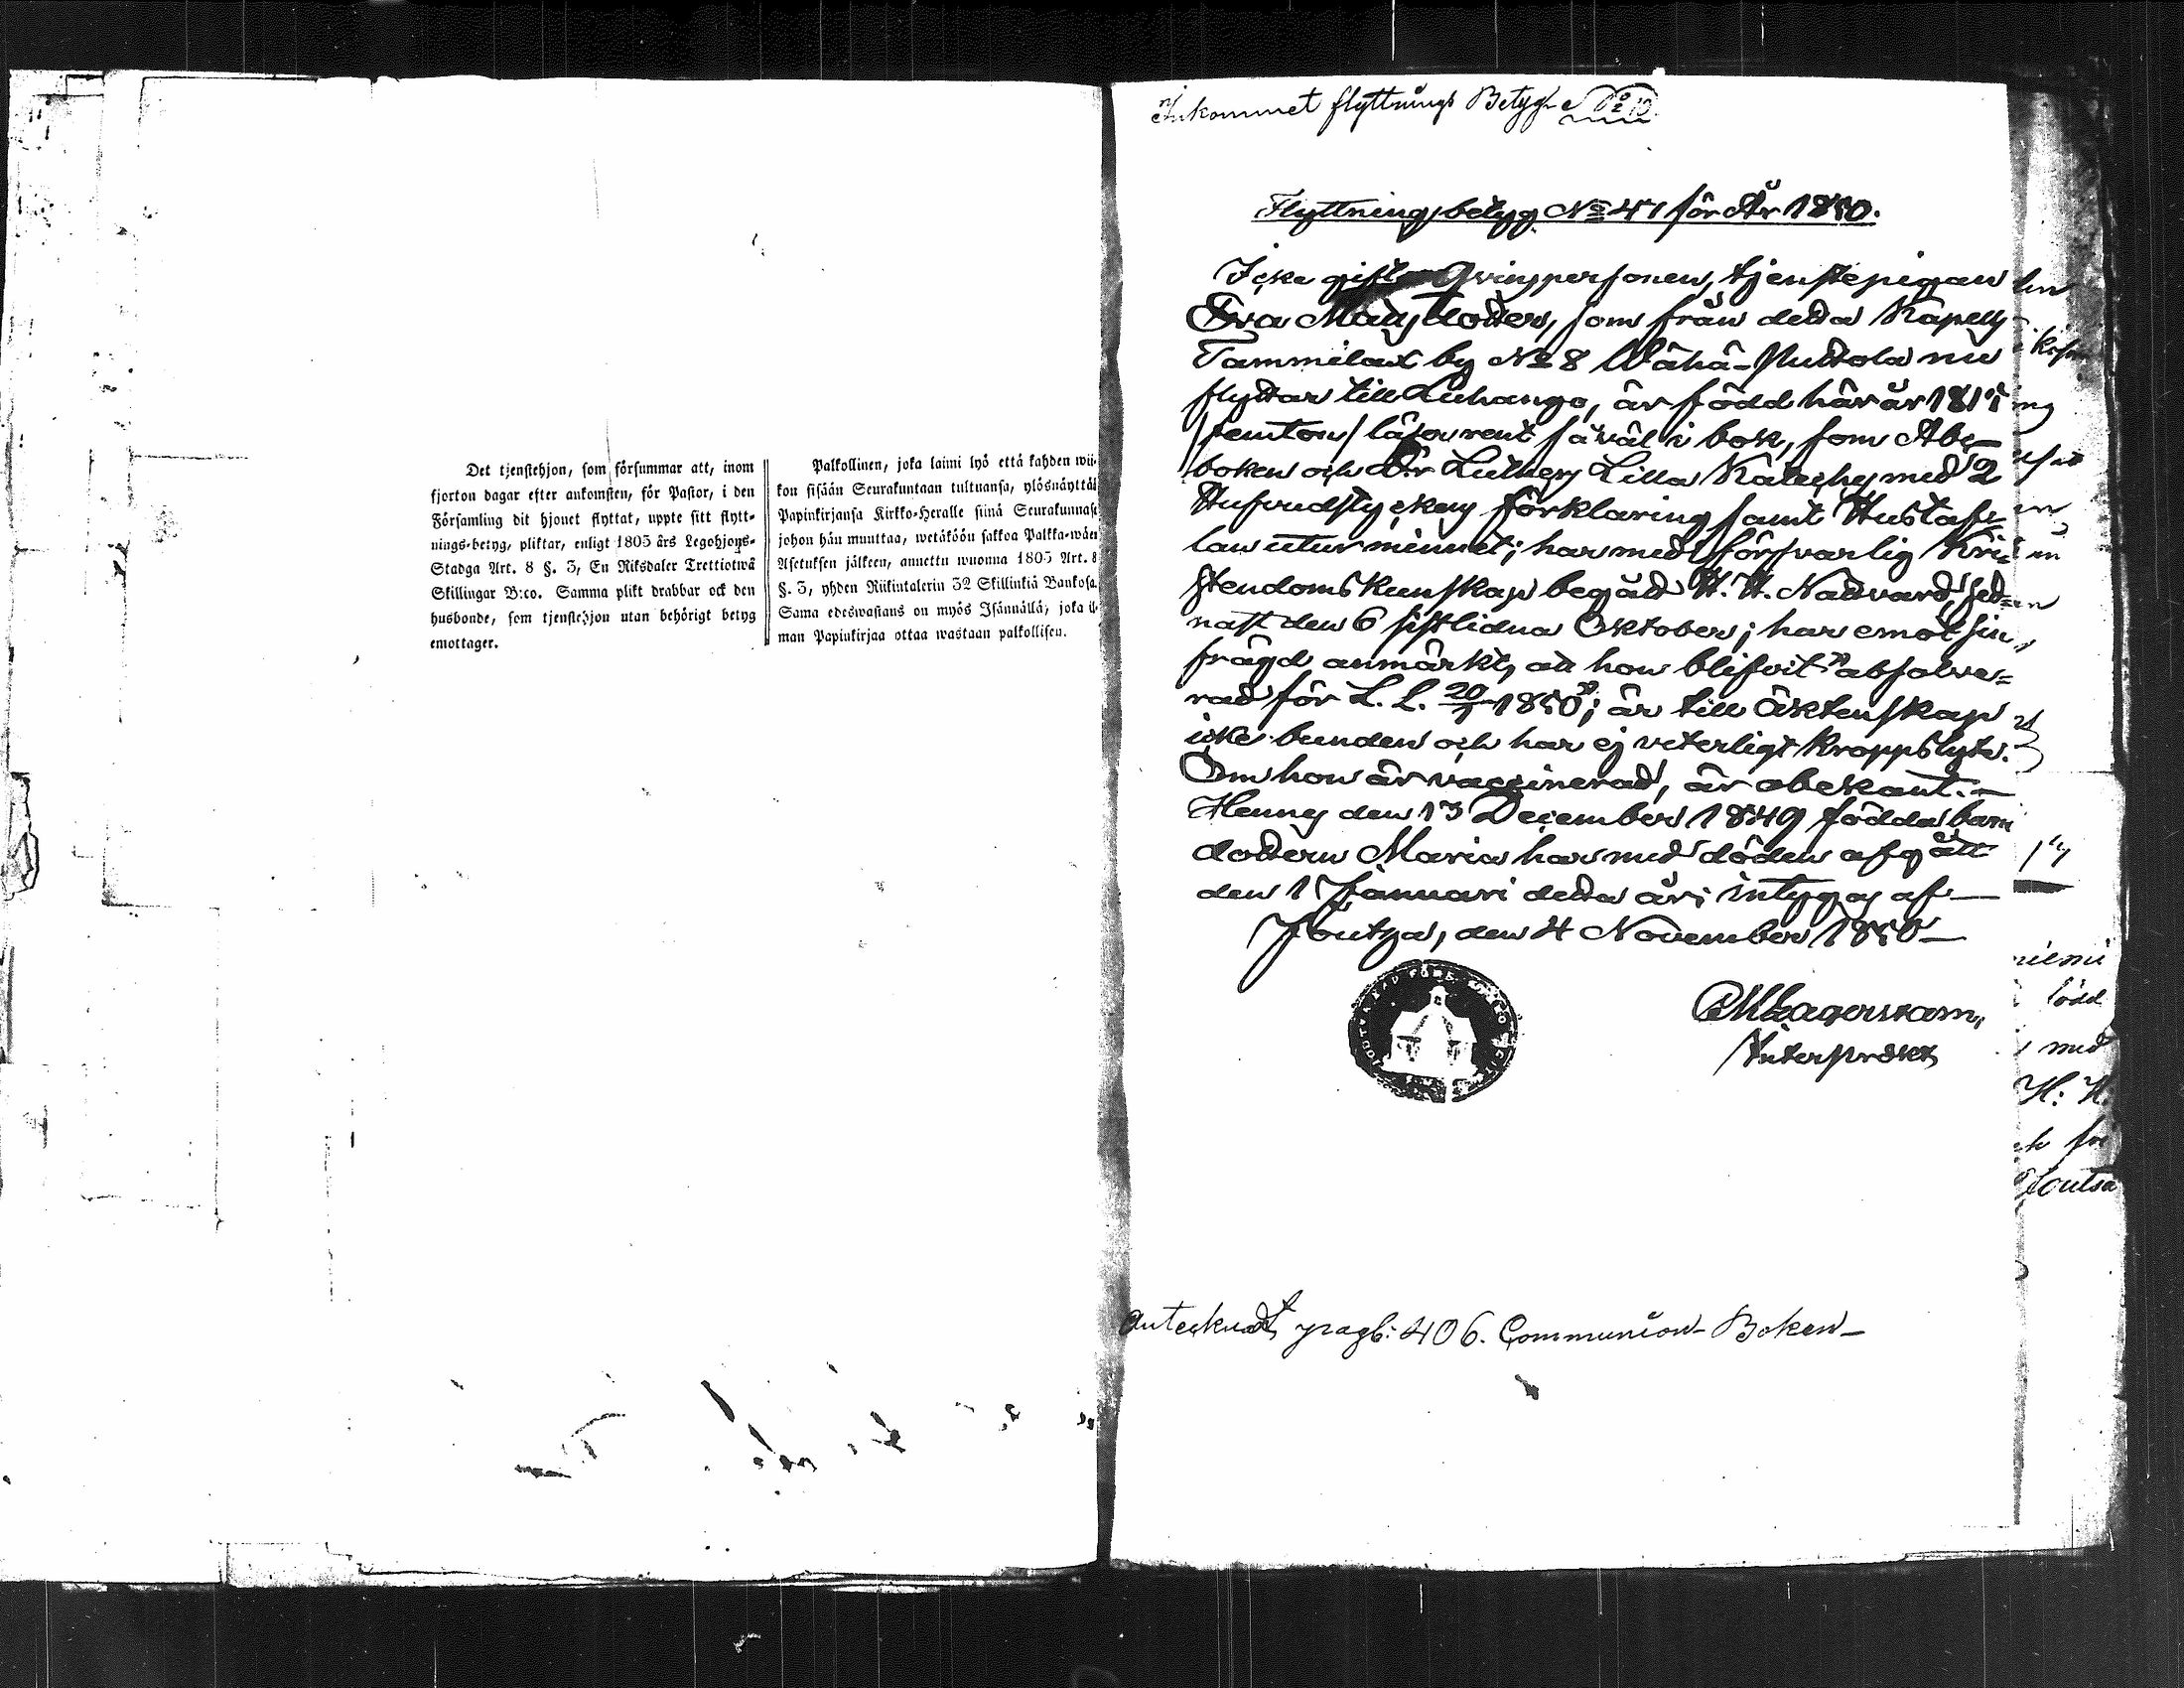 Det tjenstehjon, som försummar att, inom
fjorton dagar efter ankomsten, för Pastor, i den
Församling dit hjonet flyttat, uppte sitt flytt-
nings-betyg, pliktar, enligt 1805 års Legohjons-
Stadga Art. 8 §. 3, En Riksdaler Trettiotwå
Skillingar B:co. Samma plikt drabbar ock den
husbonde, som tjenstehjon utan behörigt betyg
emottager.
Palkollinen, joka laimi lyö että kahden wii-
kon sisään Seurakuntaan tultuansa, ylösnäyttää
Papinkirjansa Kirkko-Heralle siinä Seurakunnasa
johon hän muuttaa, wetäköön sakkoa Palkka-wäen
Asetuksen jälkeen, annettu wuonna 1805 Art. 8
§. 3, yhden Riikintalerin 32 Skillinkiä Bankosa.
Sama edeswastaus on myös Isännällä, joka il-
man Papinkirjaa ottaa wastaan palkollisen.
Inkommet flyttnings Betyg No 10.
Flyttningsbetyg No 41 för År 1850.
Icke gifta Qvinspersonen, tjenstepigan
Eva Matsdotter, som från detta Kapells
Tammilax by No 8 Wähä-Puttola nu
flyttar till Luhango, är född här år 181
/femton/ läser rent såväl i bok, som Abc-
boken och D:r Luthers Lilla Kateches med 2
Hufvudstyckens förklaring samt Hustaf-
lan utur minnet; har med försvarlig Kri-
stendomskunskap begått H. H. Nattvard, sed-
nast den 6 sistlidna Oktober; har emot sin
frägd anmärkt, att hon blifvit "absolve-
rad för L. L. 20/1 1850"; är till äktenskap
icke bunden och har ej veterligt kroppslyte.
Om hon är vaccinerad, är obekant.—
Hennes den 13 December 1849 födda barn
dottern Maria har med döden afgått
den 1 Januari detta år; intygas af—
Joutsa, den 4 November 1850—
Lagerstam,
Anteknadt pag: 406. Communion-Boken—